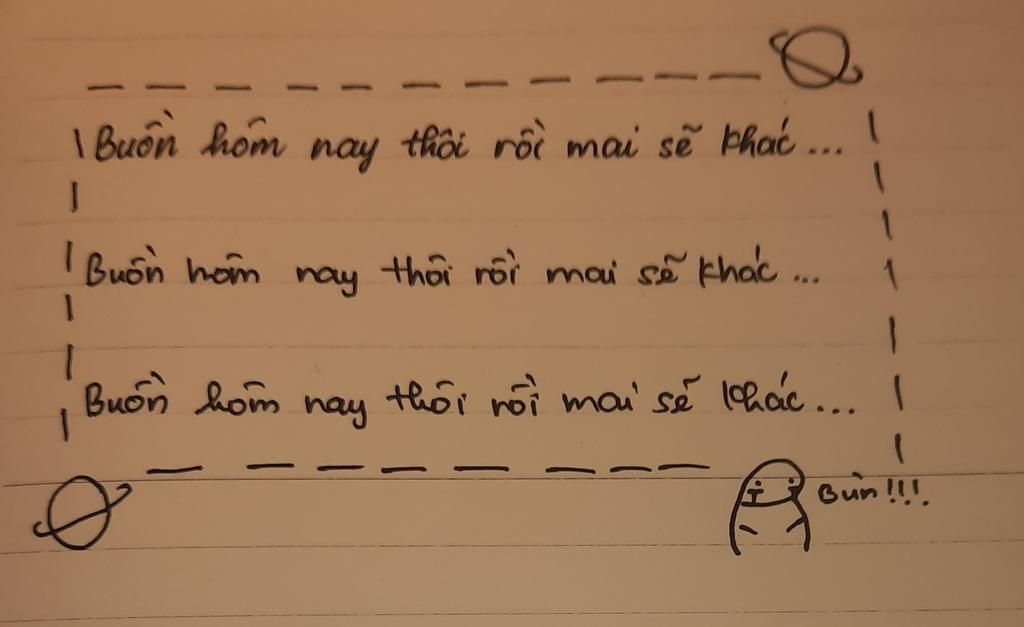 Buồn hôm nay thôi rồi mai sẽ khác...
Buồn hôm nay thôi rồi mai sẽ khác...
Buồn hôm nay thôi rồi mai sẽ khác...
Bùn!!!